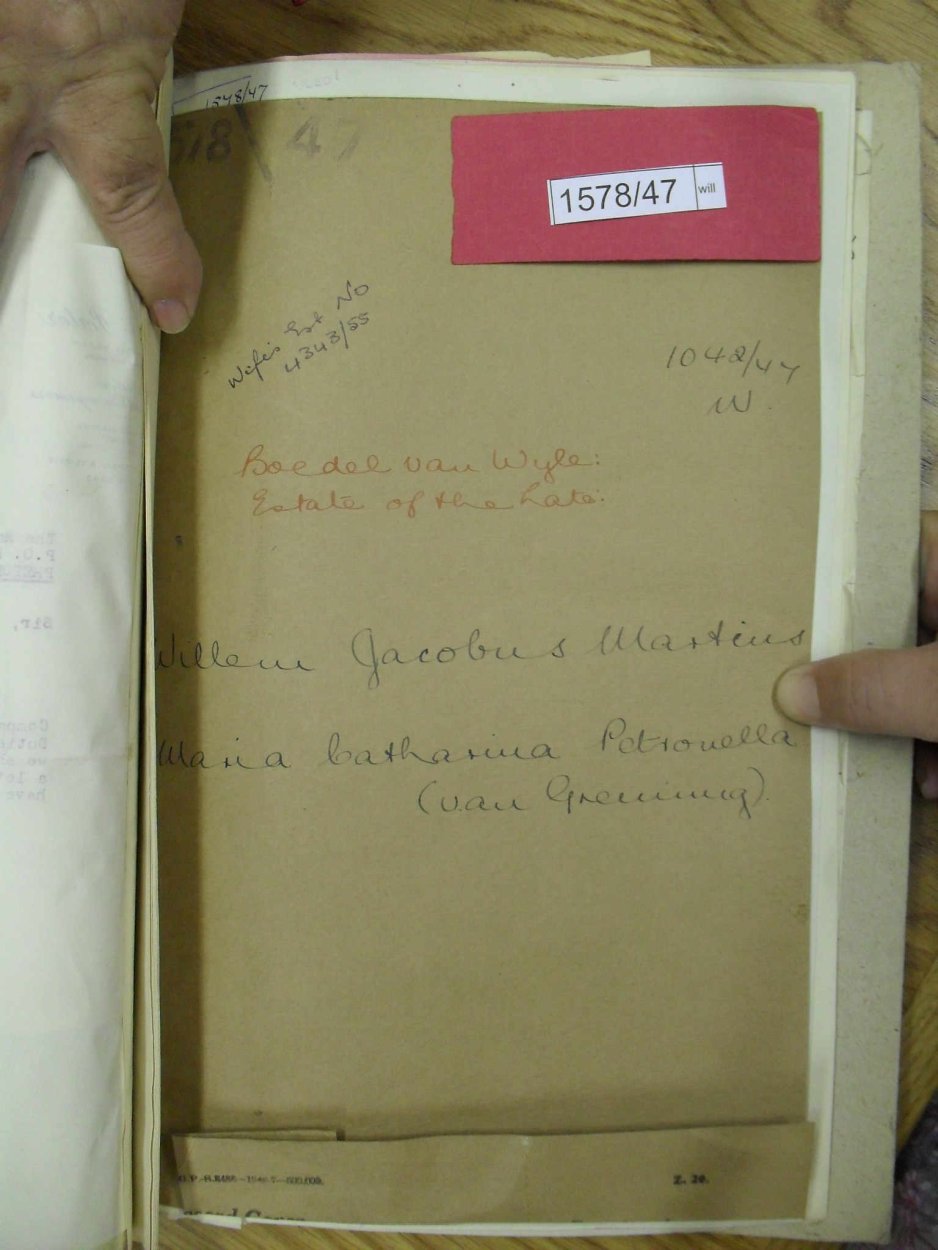 1578/47
578/47
1578/47 will
Wife's Est No
4343/55
1042/47
W.
Boedel van Wyle:
Estate of the Late:
Willem Jacobus Martins
Maria Catharina Petronella
(van Greuning).
Z. 20.
Sir,